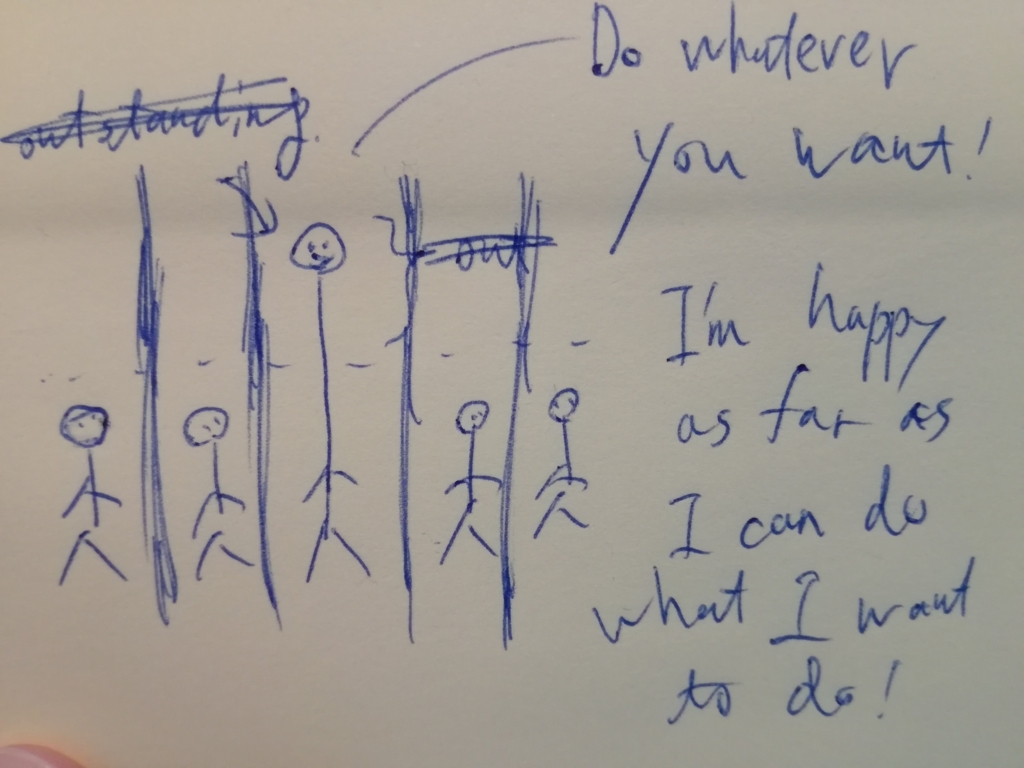 outstanding.
Do whatever
you want!
out
I'm happy
as far as
I can do
what I want
to do!